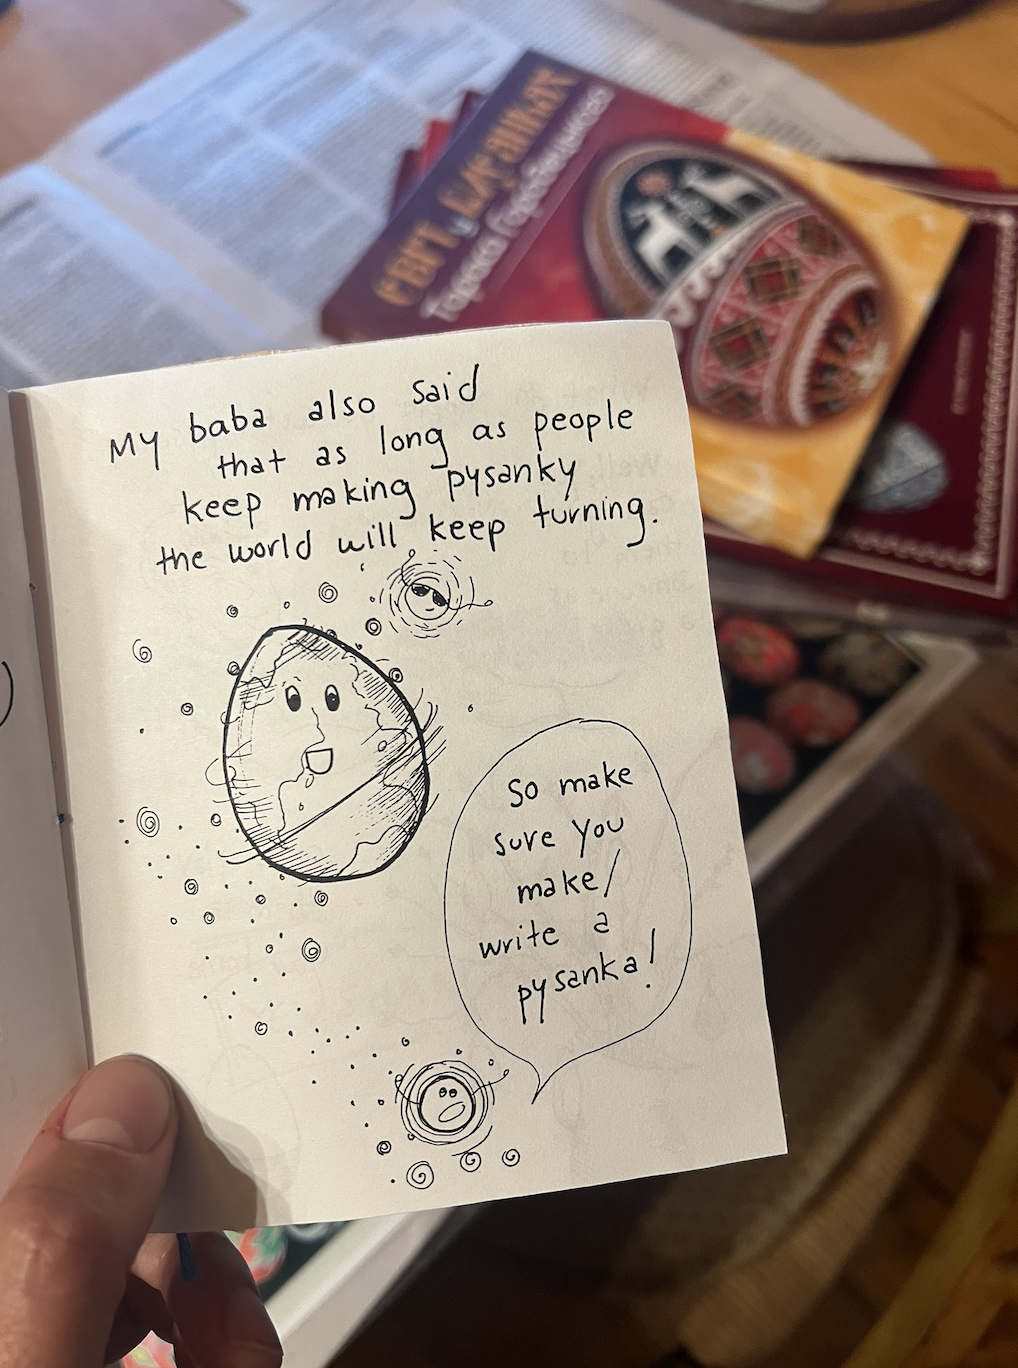 СВІТ у писанках
Тараса Городецького
My baba also said
that as long as people
keep making pysanky
the world will keep turning.
So make
sure you
make/
write a
pysanka!